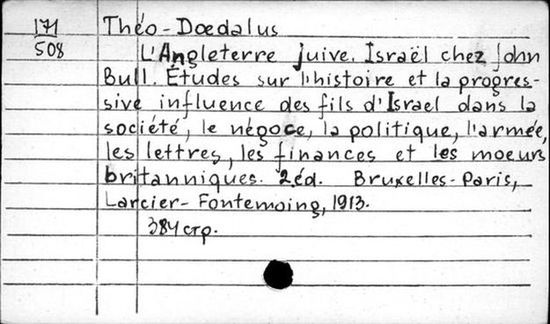 171 Théo-Dœdalus
508 L'Angleterre juive. Israël chez John
Bull. Études sur l'histoire et la progres-
sive influence des fils d'Israel dans la
société, le négoce, la politique, l'armée,
les lettres, les finances et les moeurs
britanniques. 2éd. Bruxelles-Paris,
Larcier-Fontemoing, 1913.
384 стр.